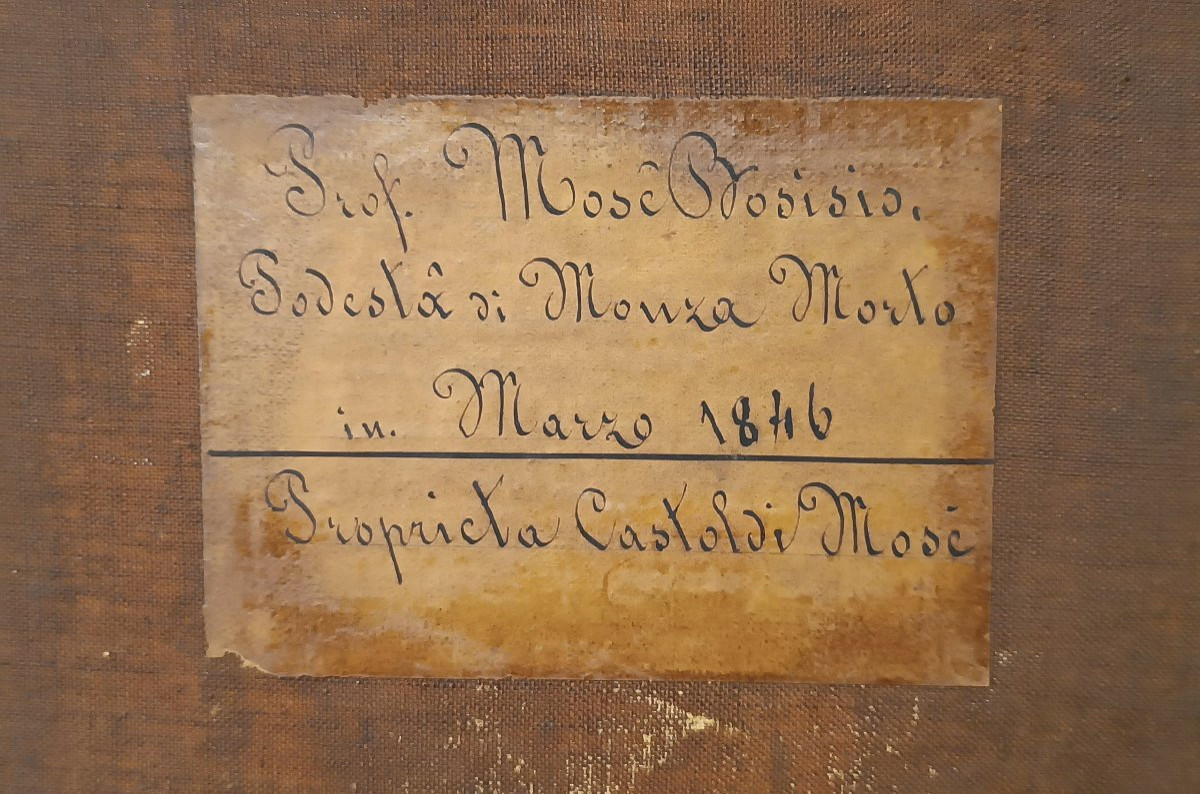 Prof. Mosê Bosisio.
Podestâ di Monza Morto
in. Marzo 1846
Proprieta Castoldi Mosê